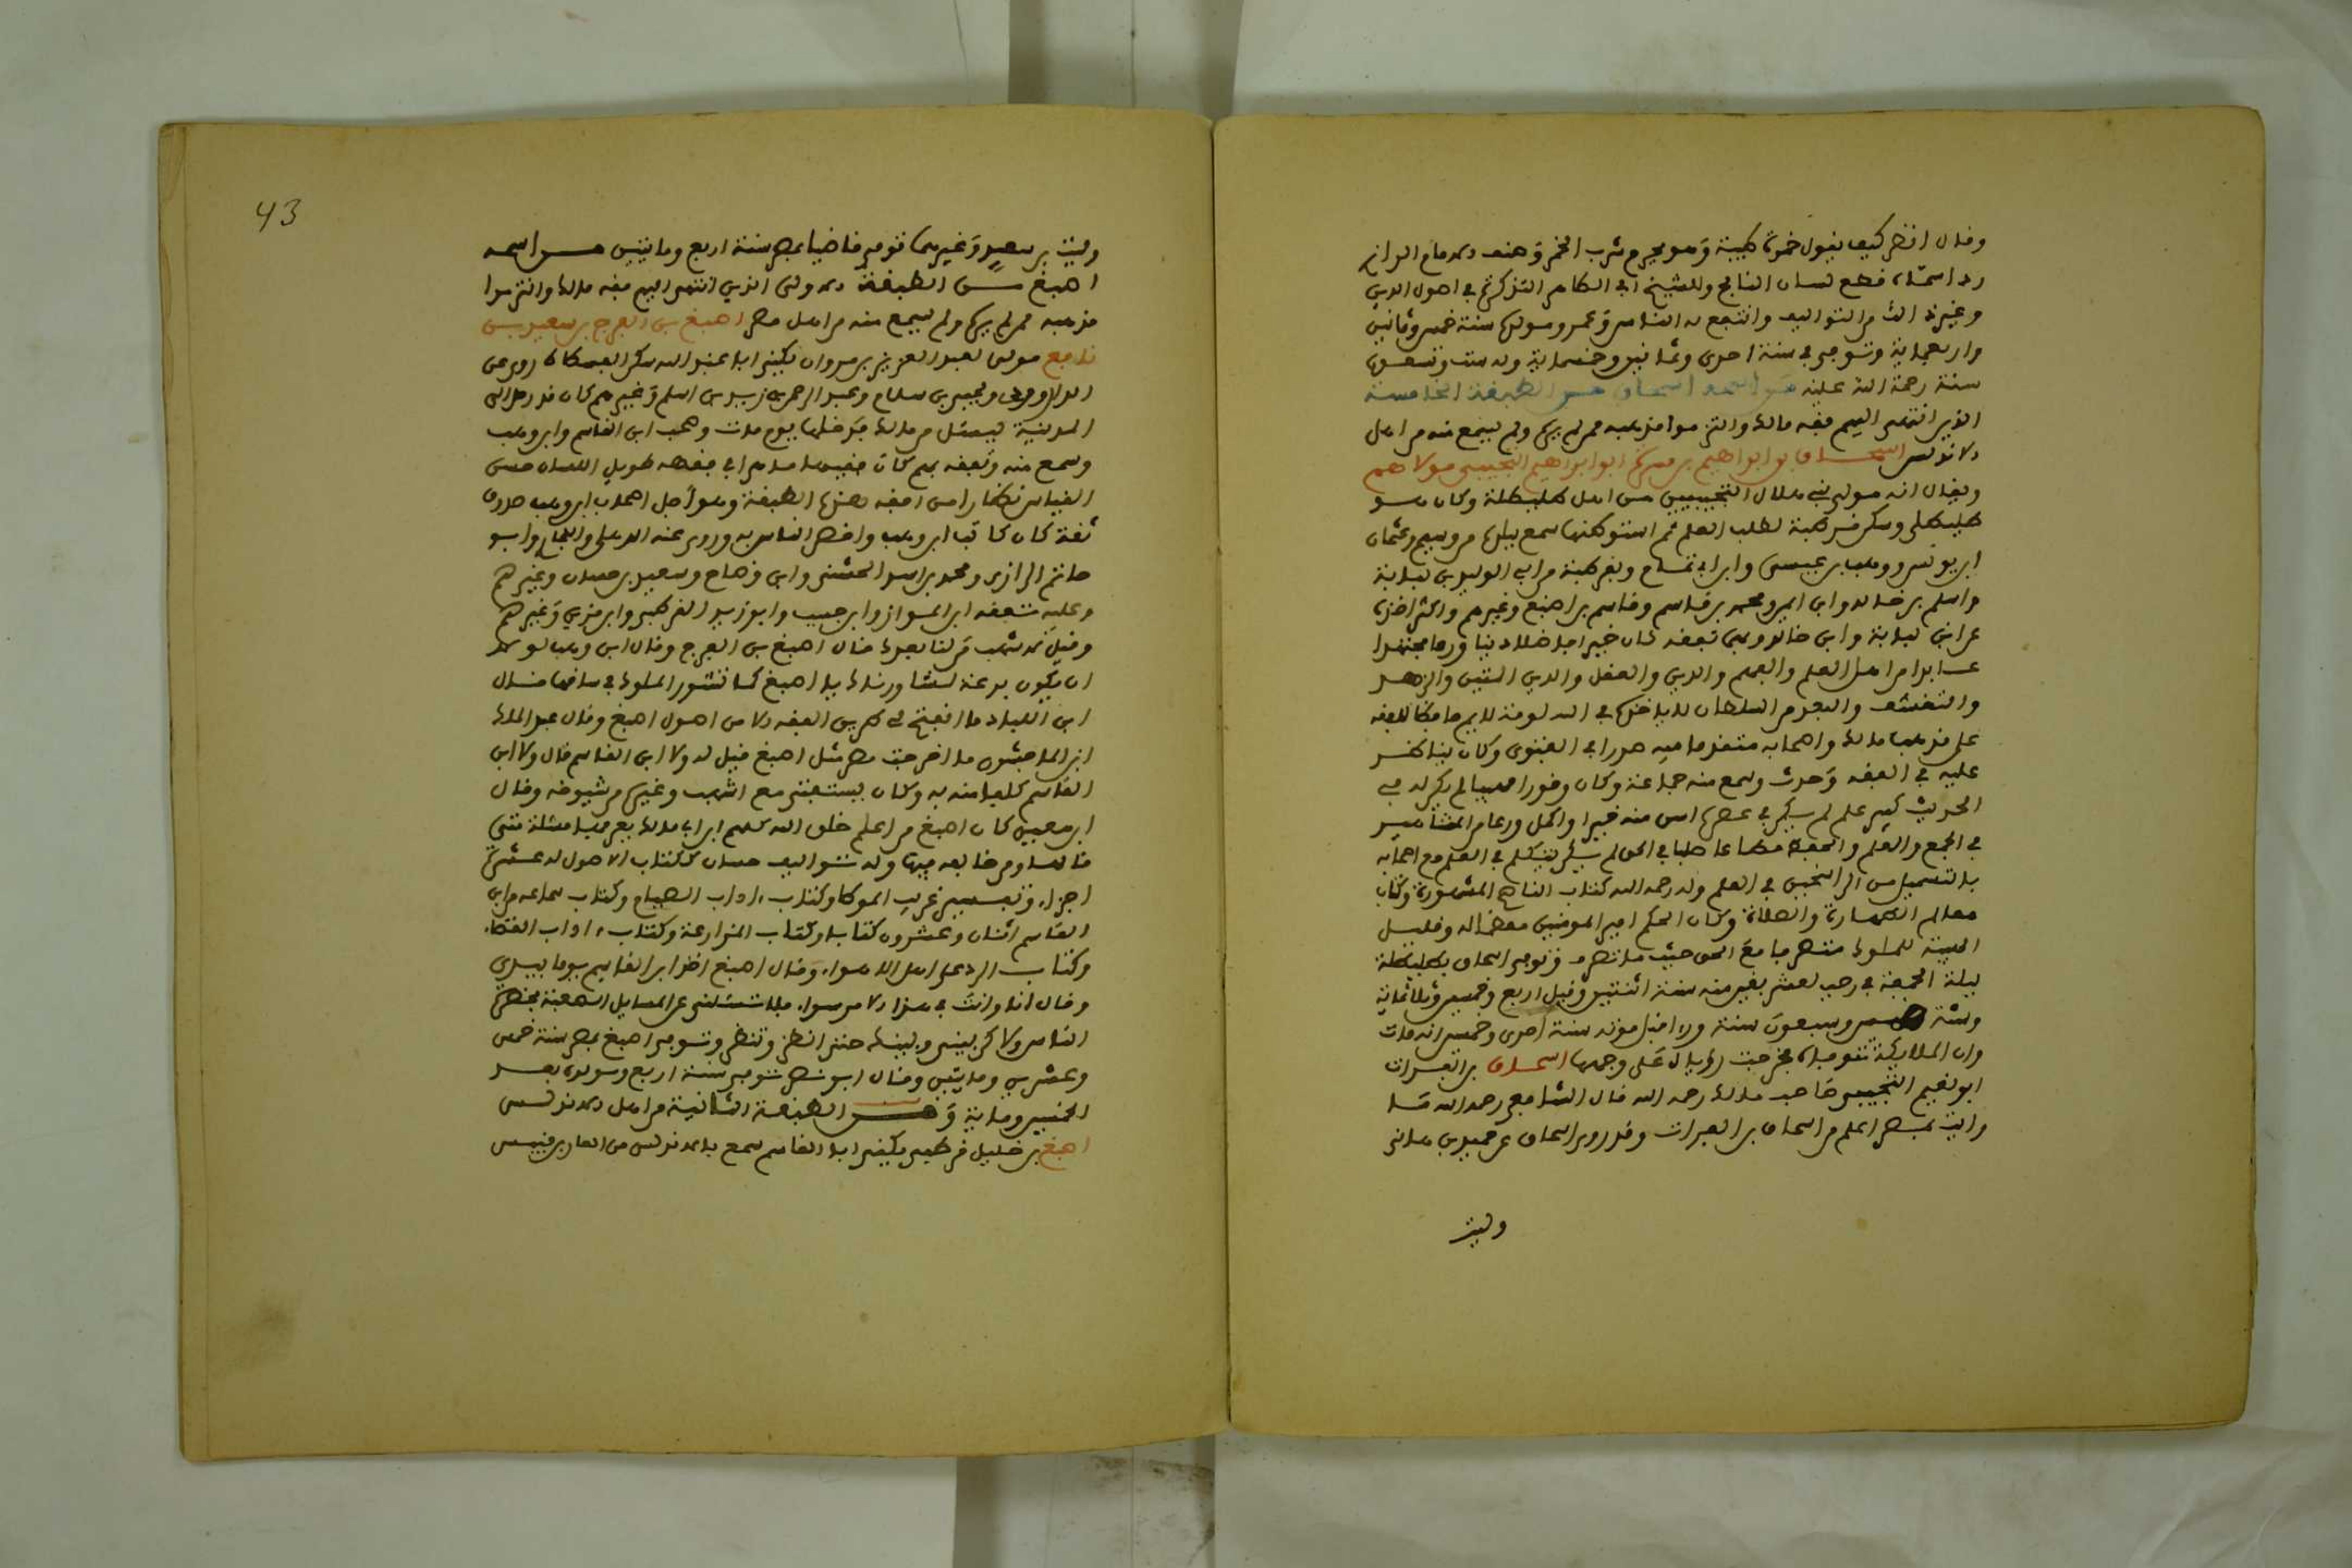 وقال انظر كيف يقول خمرة طيبة وهو يحرم شرب الخمر وصنف الامام الرازي
وغير ذلك من التواليف وانتفع به الناس وعمر ومولده سنة خمس وثمانين
واربعماية وتوفي في سنة احدى وثمانين وخمسماية وله ست وتسعون
سنة رحمة الله عليه من اسمه اسحاق من الطبقة الخامسة
الذين انتهى اليهم فقه مالك والتزموا مذهبه ممن لم يره ولم يسمع منه من اهل
الاندلس اسحاق بن ابراهيم بن مسرة ابو ابراهيم التجيبي مولاهم
ويقال انه مولى بني هلال التجيبيين من اهل طليطلة وكان هو
طليطلي وسكن قرطبة لطلب العلم ثم استوطنها سمع ببلده من وسيم وعثمان
ابن يونس ووهب بن عيسى وابن ابي تمام وبقرطبة من ابي الوليد بن لبابة
واسلم بن خالد وابن ايمن ومحمد بن قاسم وقاسم بن اصبغ وغيرهم واكثر اخذه
عن ابن لبابة وابن خالد وبهما تفقه كان خيرا فاضلا دينا ورعا مجتهدا
عابدا من اهل العلم والفهم والدين والعقل والدين المتين والزهد
والتقشف والبعد من السلطان لا ياخذه في الله لومة لايم حافظا للفقه
على مذهب مالك واصحابه متقدما فيه صدرا في الفتوى وكان يناظر
عليه في الفقه وحدث وسمع منه جماعة وكان وقورا مهيبا لم يكن له في
الحديث كبير علم لم يكن في عصره ابين منه خيرا واكمل ورعا من المشاهير
في الجمع والعلم والحفظ
بالتسهيل من الراسخين في العلم وله رحمه الله كتاب النصايح المشهورة وكتاب
معالم الطهارة والصلاة وكان الحكم امير المومنين معظما له وقليل
الهيبة للملوك متصرفا مع الحق حيث ما تصرف وتوفي اسحاق بطليطلة
ليلة الجمعة في رجب لعشر بقين منه سنة اثنتين وقيل اربع وخمسين وثلاثماية
وسنه خمس وسبعون سنة وراى قبل موته سنة احدى وخمسين انه مات
وان الملايكة تتوفاه فخرجت رؤياه على وجهها اسحاق بن الفرات
ابو نعيم التجيبي صاحب مالك رحمه الله قال الشافعي رحمه الله ما
رايت بمصر اعلم من اسحاق بن الفرات وقد روى اسحاق عن حميد بن هاني
وليث
43
وليث بن سعد وغيرهما توفي قاضيا بمصر سنة اربع ومايتين من اسمه
اصبغ من الطبقة الاولى الذين انتهى اليهم فقه مالك والتزموا
مذهبه ممن لم يره ولم يسمع منه من اهل مصر اصبغ بن الفرج بن سعيد بن
نافع مولى لعبد العزيز بن مروان يكنى ابا عبد الله سكن الفسطاط روى عن
الدراوردي ويحيى بن سلام وعبد الرحمن بن زيد بن اسلم وغيرهم كان قد رحل الى
المدينة ليسمع من مالك فدخلها يوم مات وصحب ابن القاسم وابن وهب
وسمع منه وتفقه بهم كان فقيه
القياس نظارا من افقه هذه الطبقة وهو اجل اصحاب ابن وهب صدوق
ثقة كان كاتب ابن وهب واخص الناس به وروى عنه الذهلي والبخاري وابو
حاتم الرازي ومحمد بن اسد الخشني وابن وضاح وسعيد بن حسان وغيرهم
وعليه تفقه ابن المواز وابن حبيب وابو زيد القرطبي وابن مزين وغيرهم
وقيل لاشهب من لنا بعدك قال اصبغ بن الفرج وقال ابن وهب لولا
ان يكون بدعة لسورناك يا اصبغ كما تسور الملوك فرسانها قال
ابن اللباد ما انفتح لي طريق الفقه الا من اصول اصبغ وقال عبد الملك
ابن الماجشون ما اخرجت مصر مثل اصبغ قيل له ولا ابن القاسم قال ولا ابن
القاسم كلفا منه به وكان يستفتى مع اشهب وغيره من شيوخه وقال
ابن معين كان اصبغ من اعلم خلق الله كلهم براي مالك يعرفها مسئلة متى
قالها ومن خالفه فيها وله تواليف حسان ككتاب الاصول له عشرة
اجزاء وتفسير غريب الموطا وكتاب اداب الصيام وكتاب سماعه من ابن
القاسم اثنان وعشرون كتابا وكتاب المزارعة وكتاب اداب القضاء
وكتاب الرد على اهل الاهواء وقال اصبغ اخذ ابن القاسم يوما بيدي
وقال انا وانت في هذا الامر سواء فلا تسئلني عن المسايل الصعبة بحضرة
الناس ولاكن بيني وبينك حتى انظر وتنظر وتوفي اصبغ بمصر سنة خمس
وعشرين ومايتين وقال ابو نصر توفي سنة اربع ومولده بعد
الخمسين وماية ومن الطبقة الثانية من اهل الاندلس
اصبغ بن خليل قرطبي يكنى ابا القاسم سمع بالاندلس من الغاز بن قيس